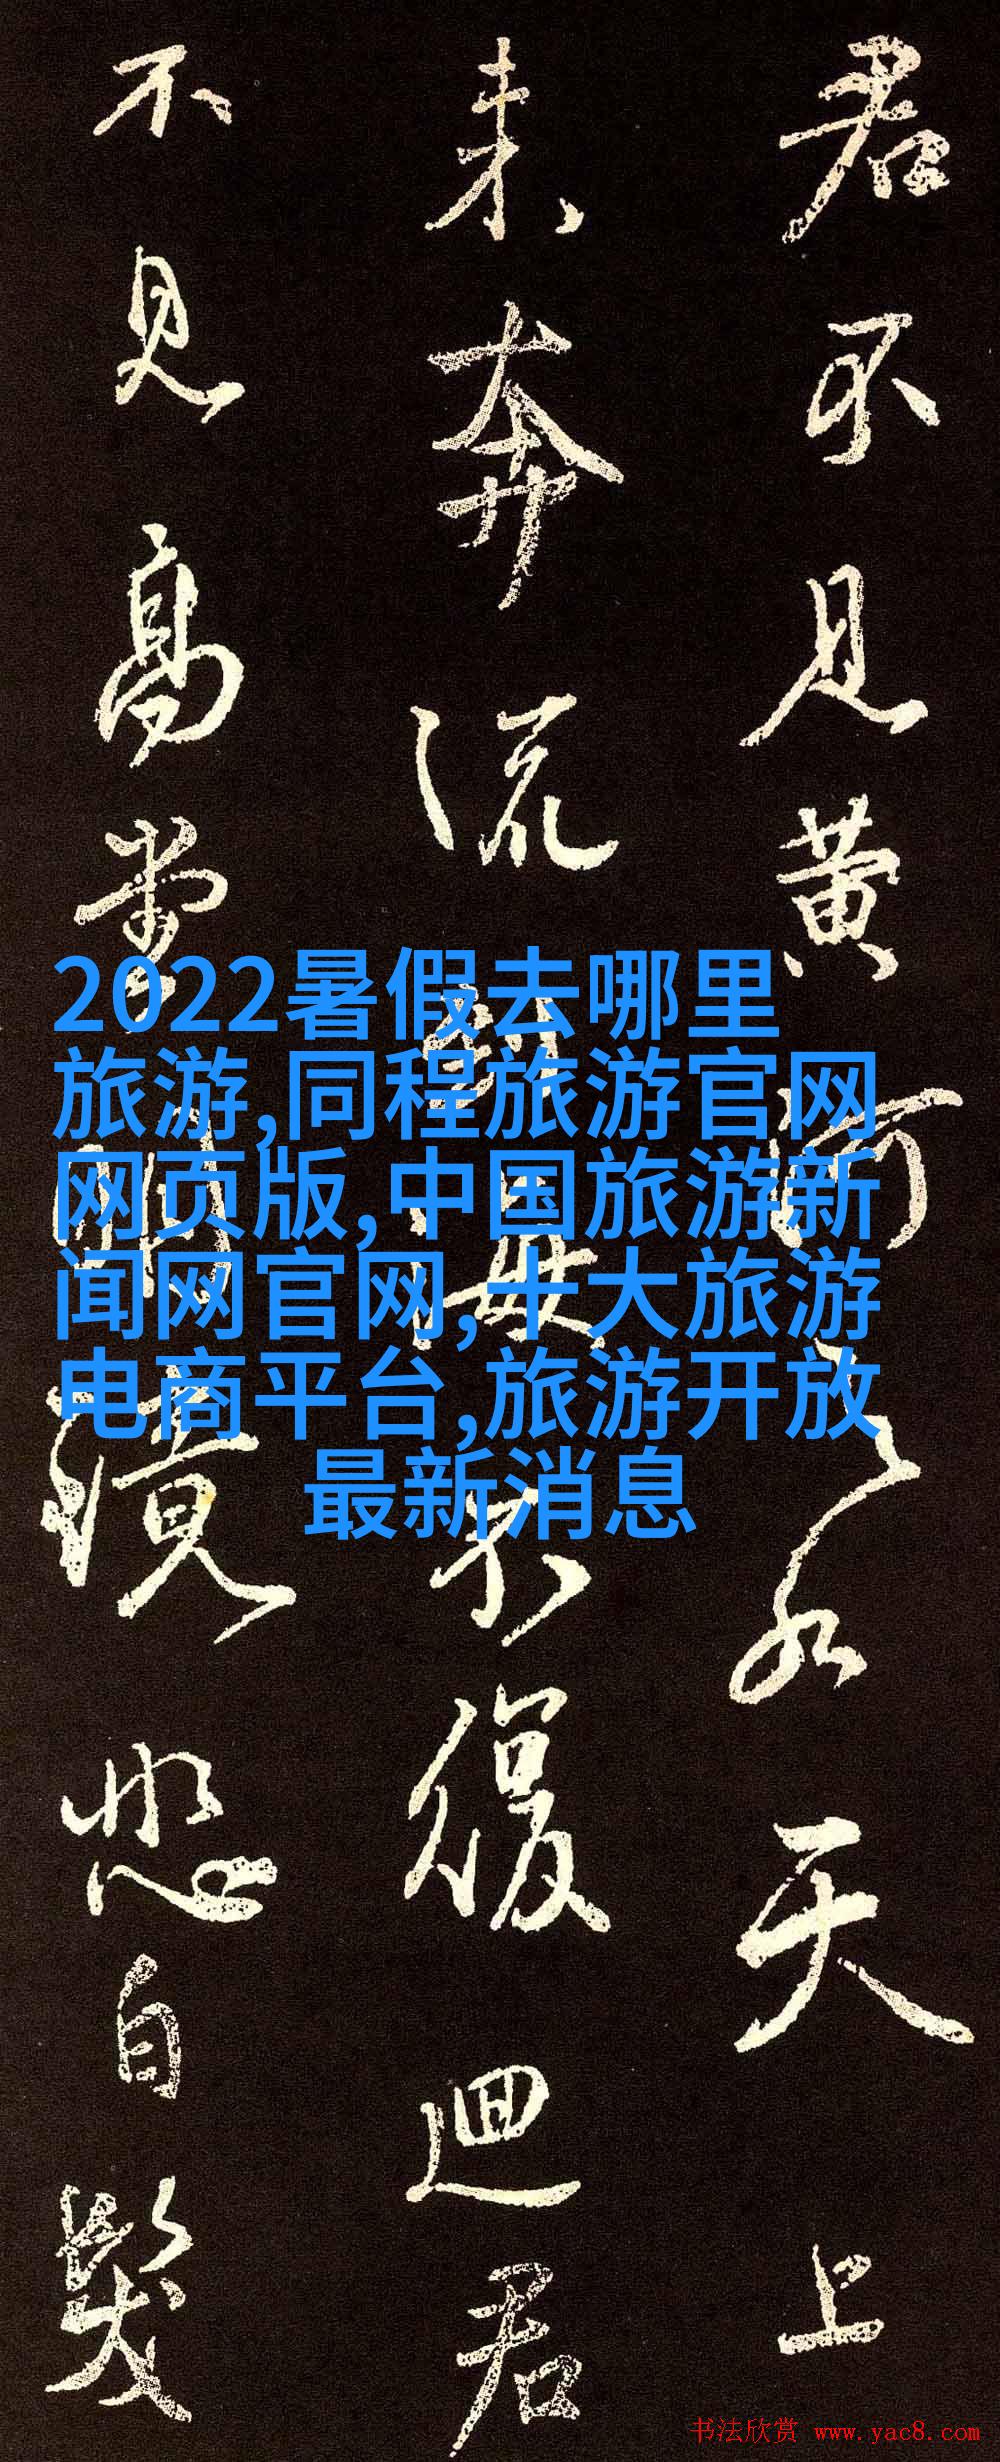 君不見黄河之水天上
来奔流到海不復迴君
不見高堂明鏡悲白髮
2022暑假去哪里
旅游,同程旅游官网
网页版,中国旅游新
闻网官网,十大旅游
电商平台,旅游开放
最新消息
书法欣赏 www.yac8.com